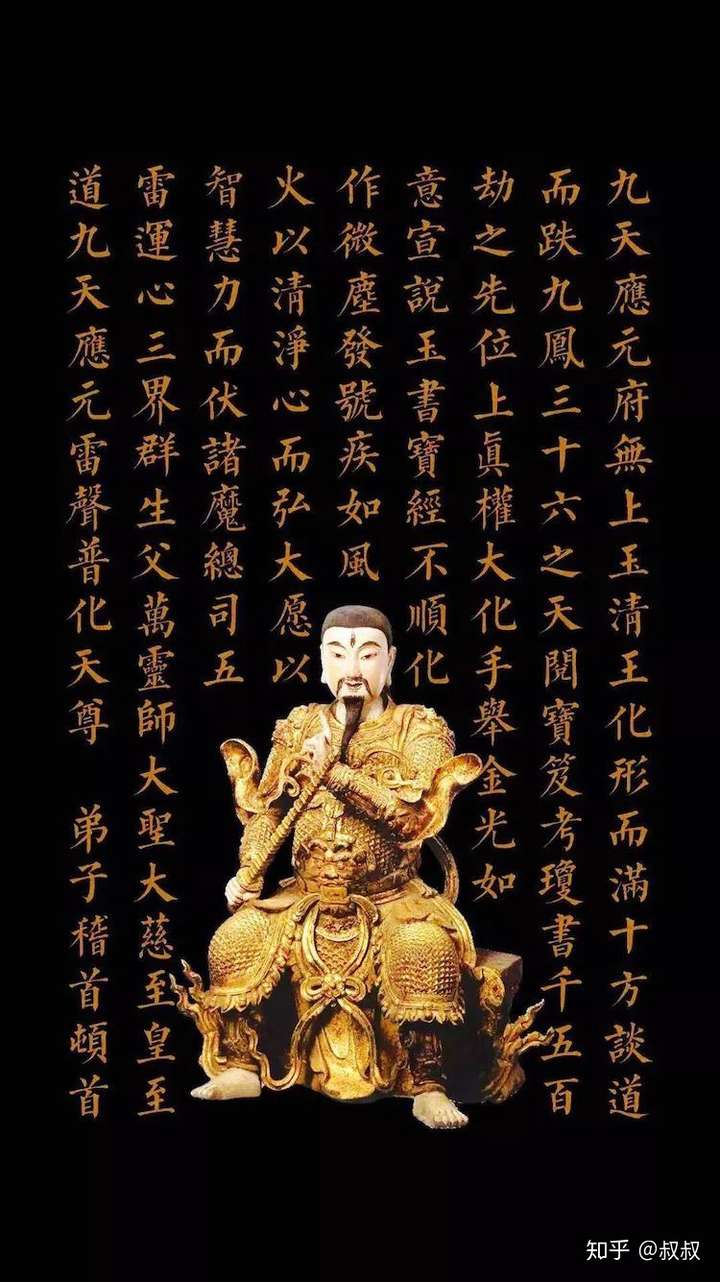 九天應元府無上玉清王化形而滿十方談道
而趺九鳳三十六之天閱寶笈考瓊書千五百
劫之先位上眞權大化手舉金光如
意宣說玉書寶經不順化
作微塵發號疾如風
火以清淨心而弘大愿以
智慧力而伏諸魔總司五
雷運心三界群生父萬靈師大聖大慈至皇至
道九天應元雷聲普化天尊 弟子稽首頓首
知乎 @叔叔